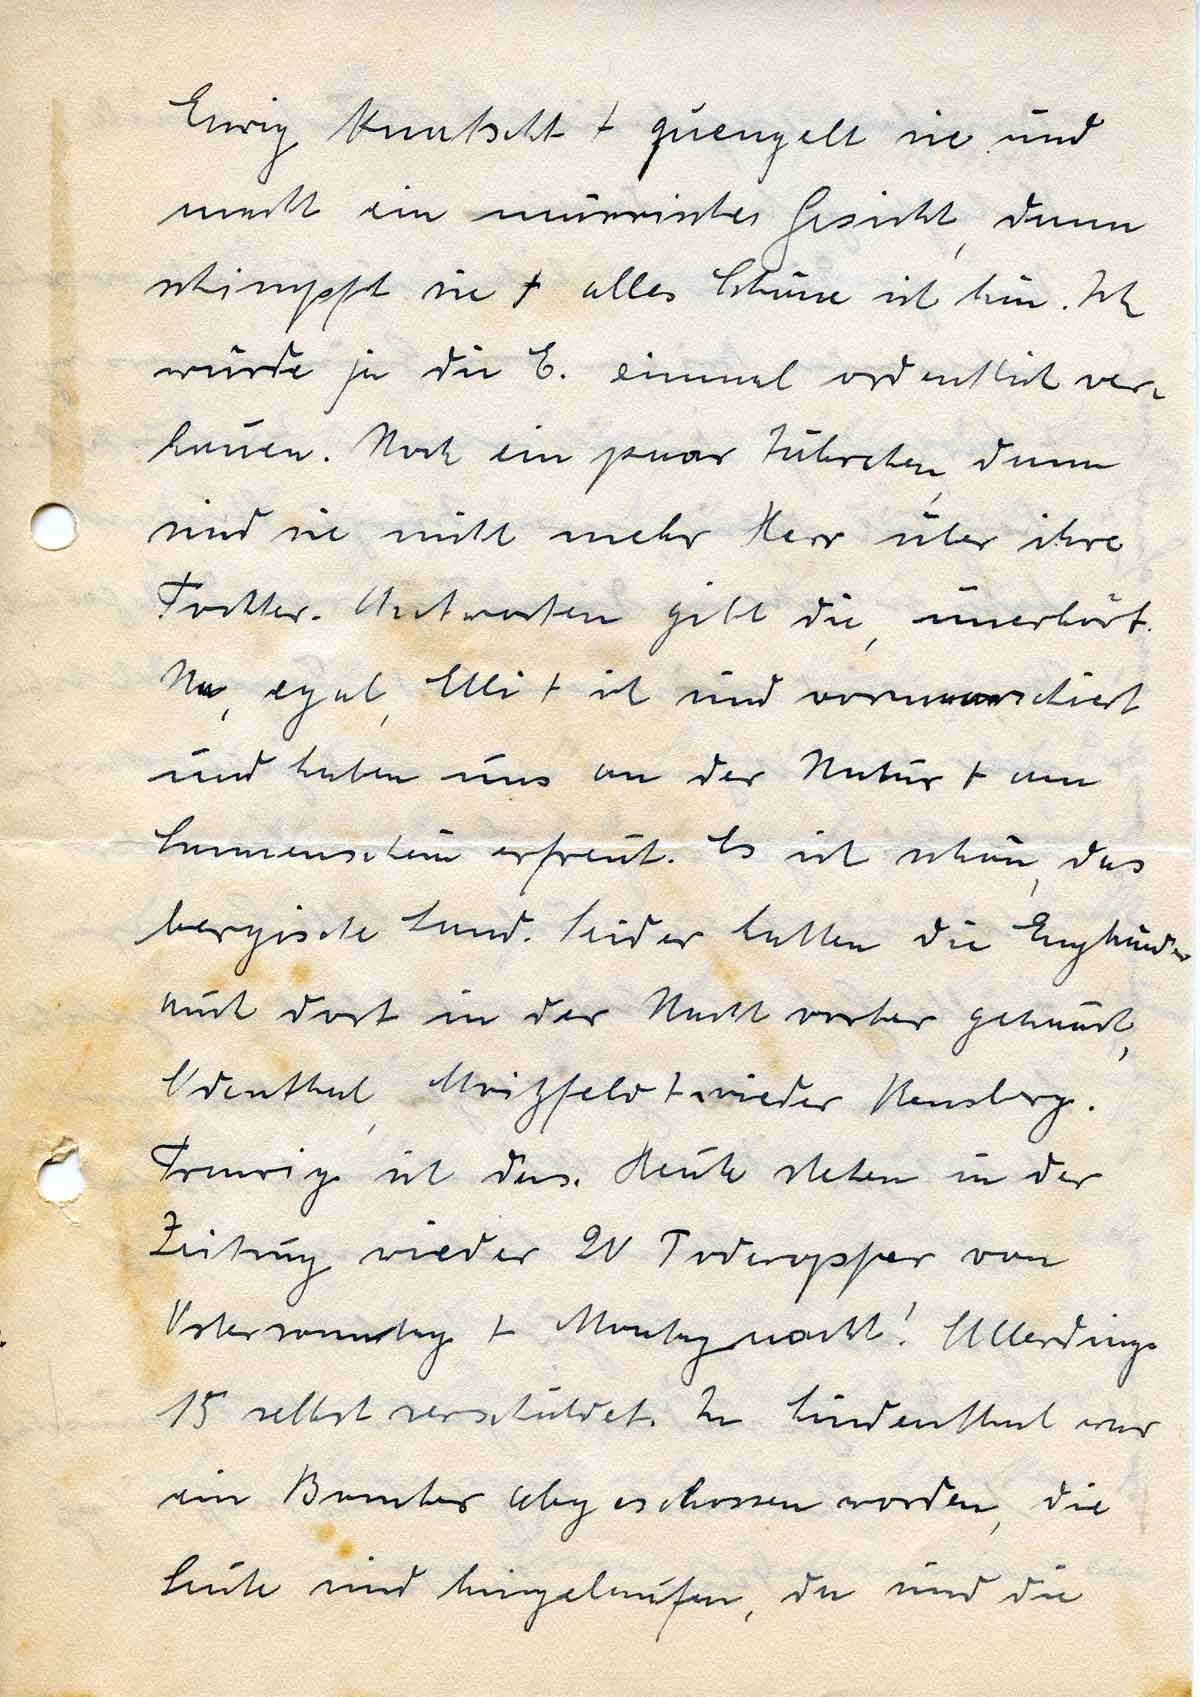 Ewig knatscht + quengelt sie und
macht ein mürrisches Gesicht, dann
schimpft sie + alles Schöne ist hin. Ich
würde ja die E. einmal ordentlich ver-
hauen. Noch ein paar Jährchen, dann
sind sie nicht mehr Herr über ihre
Tochter. Antworten gibt die, unerhört.
Na, egal, Elli + ich sind vormarschiert
und haben uns an der Natur + am
Sonnenschein erfreut. Es ist schön, das
bergische Land. Leider hatten die Engländer
auch dort in der Nacht vorher gehaust,
Odenthal, + wieder Bensberg.
Traurig ist das. Heute stehen in der
Zeitung wieder 20 Todesopfer von
Ostersonntag + Montag nacht! Allerdings
15 selbst verschuldet. In Lindenthal war
ein Bomber abgeschossen worden, die
Leute sind hingelaufen, da sind die